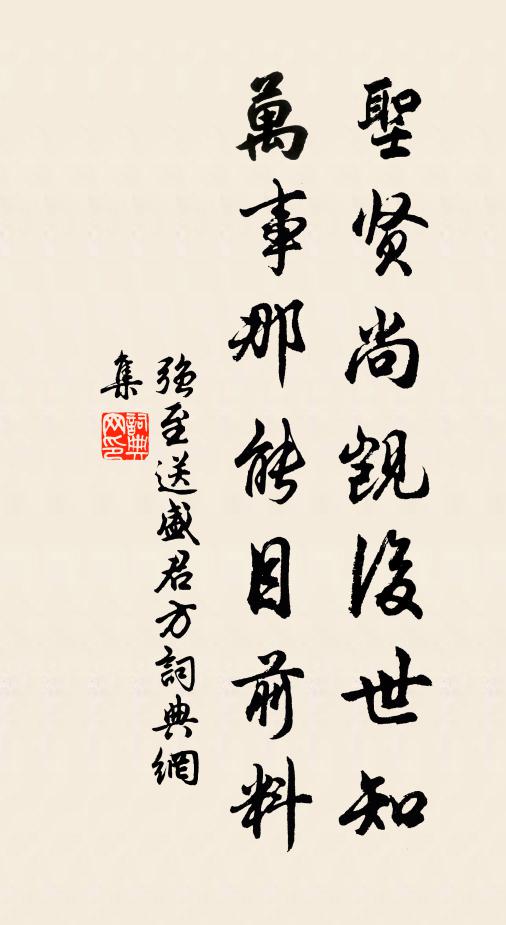 聖贤尚觊後世知
萬事那能目前料
强至送盛君方詞典網
集
詞典网印